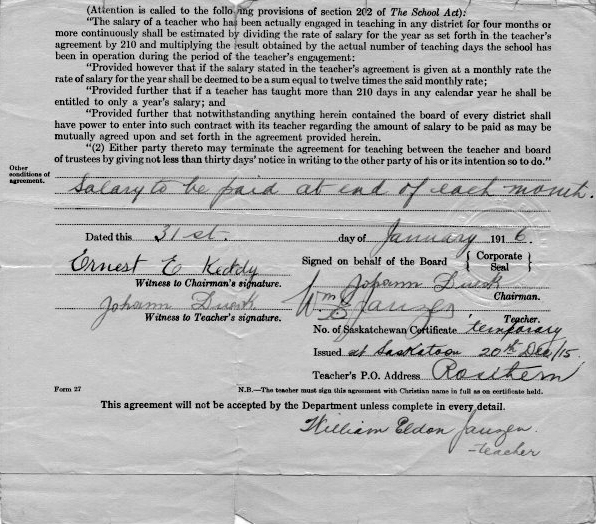 (Attention is called to the following provisions of section 202 of The School Act):
"The salary of a teacher who has been actually engaged in teaching in any district for four months or
more continuously shall be estimated by dividing the rate of salary for the year as set forth in the teacher's
agreement by 210 and multiplying the result obtained by the actual number of teaching days the school has
been in operation during the period of the teacher's engagement:
"Provided however that if the salary stated in the teacher's agreement is given at a monthly rate the
rate of salary for the year shall be deemed to be a sum equal to twelve times the said monthly rate;
"Provided further that if a teacher has taught more than 210 days in any calendar year he shall be
entitled to only a year's salary; and
"Provided further that notwithstanding anything herein contained the board of every district shall
have power to enter into such contract with its teacher regarding the amount of salary to be paid as may be
mutually agreed upon and set forth in the agreement provided herein.
"(2) Either party thereto may terminate the agreement for teaching between the teacher and board
of trustees by giving not less than thirty days' notice in writing to the other party of his or its intention so to do."
Other
conditions of
agreement.
Salary to be paid at end of each month.
Dated this 31st. day of January 1916.
Ernest E Keddy Signed on behalf of the Board { Corporate Seal }
Witness to Chairman's signature. Johann
Chairman.
Johann Wm E Janzen
Witness to Teacher's signature. Teacher.
No. of Saskatchewan Certificate temporary
Issued at Saskatoon 20th Dec/15.
Teacher's P.O. Address Rosthern
Form 27 N.B.—The teacher must sign this agreement with Christian name in full as on certificate held.
This agreement will not be accepted by the Department unless complete in every detail.
William Eldon Janzen.
-teacher